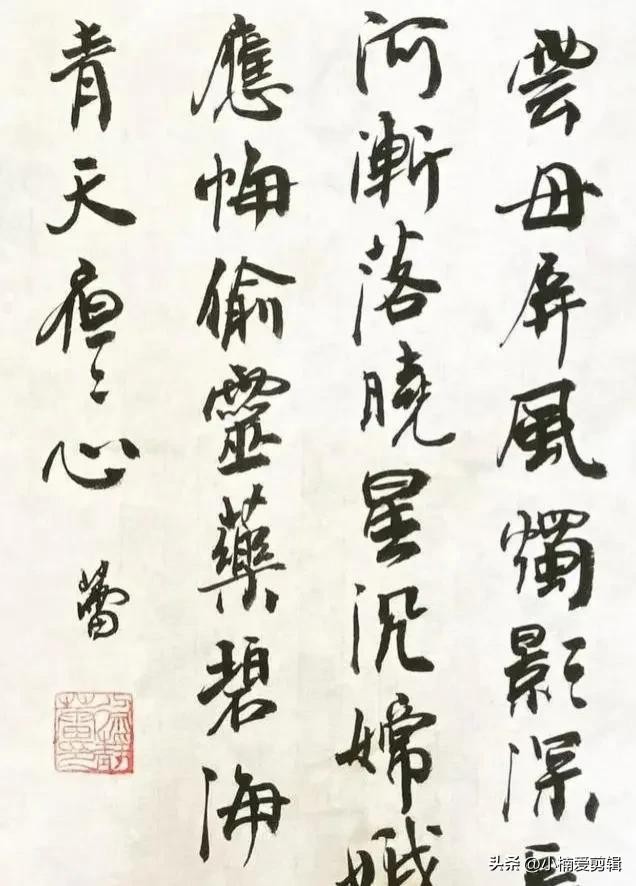 雲母屏風燭影深長
河漸落曉星沉嫦娥
應悔偷靈藥碧海
青天夜〻心
蕾
头条 @小楠爱剪辑